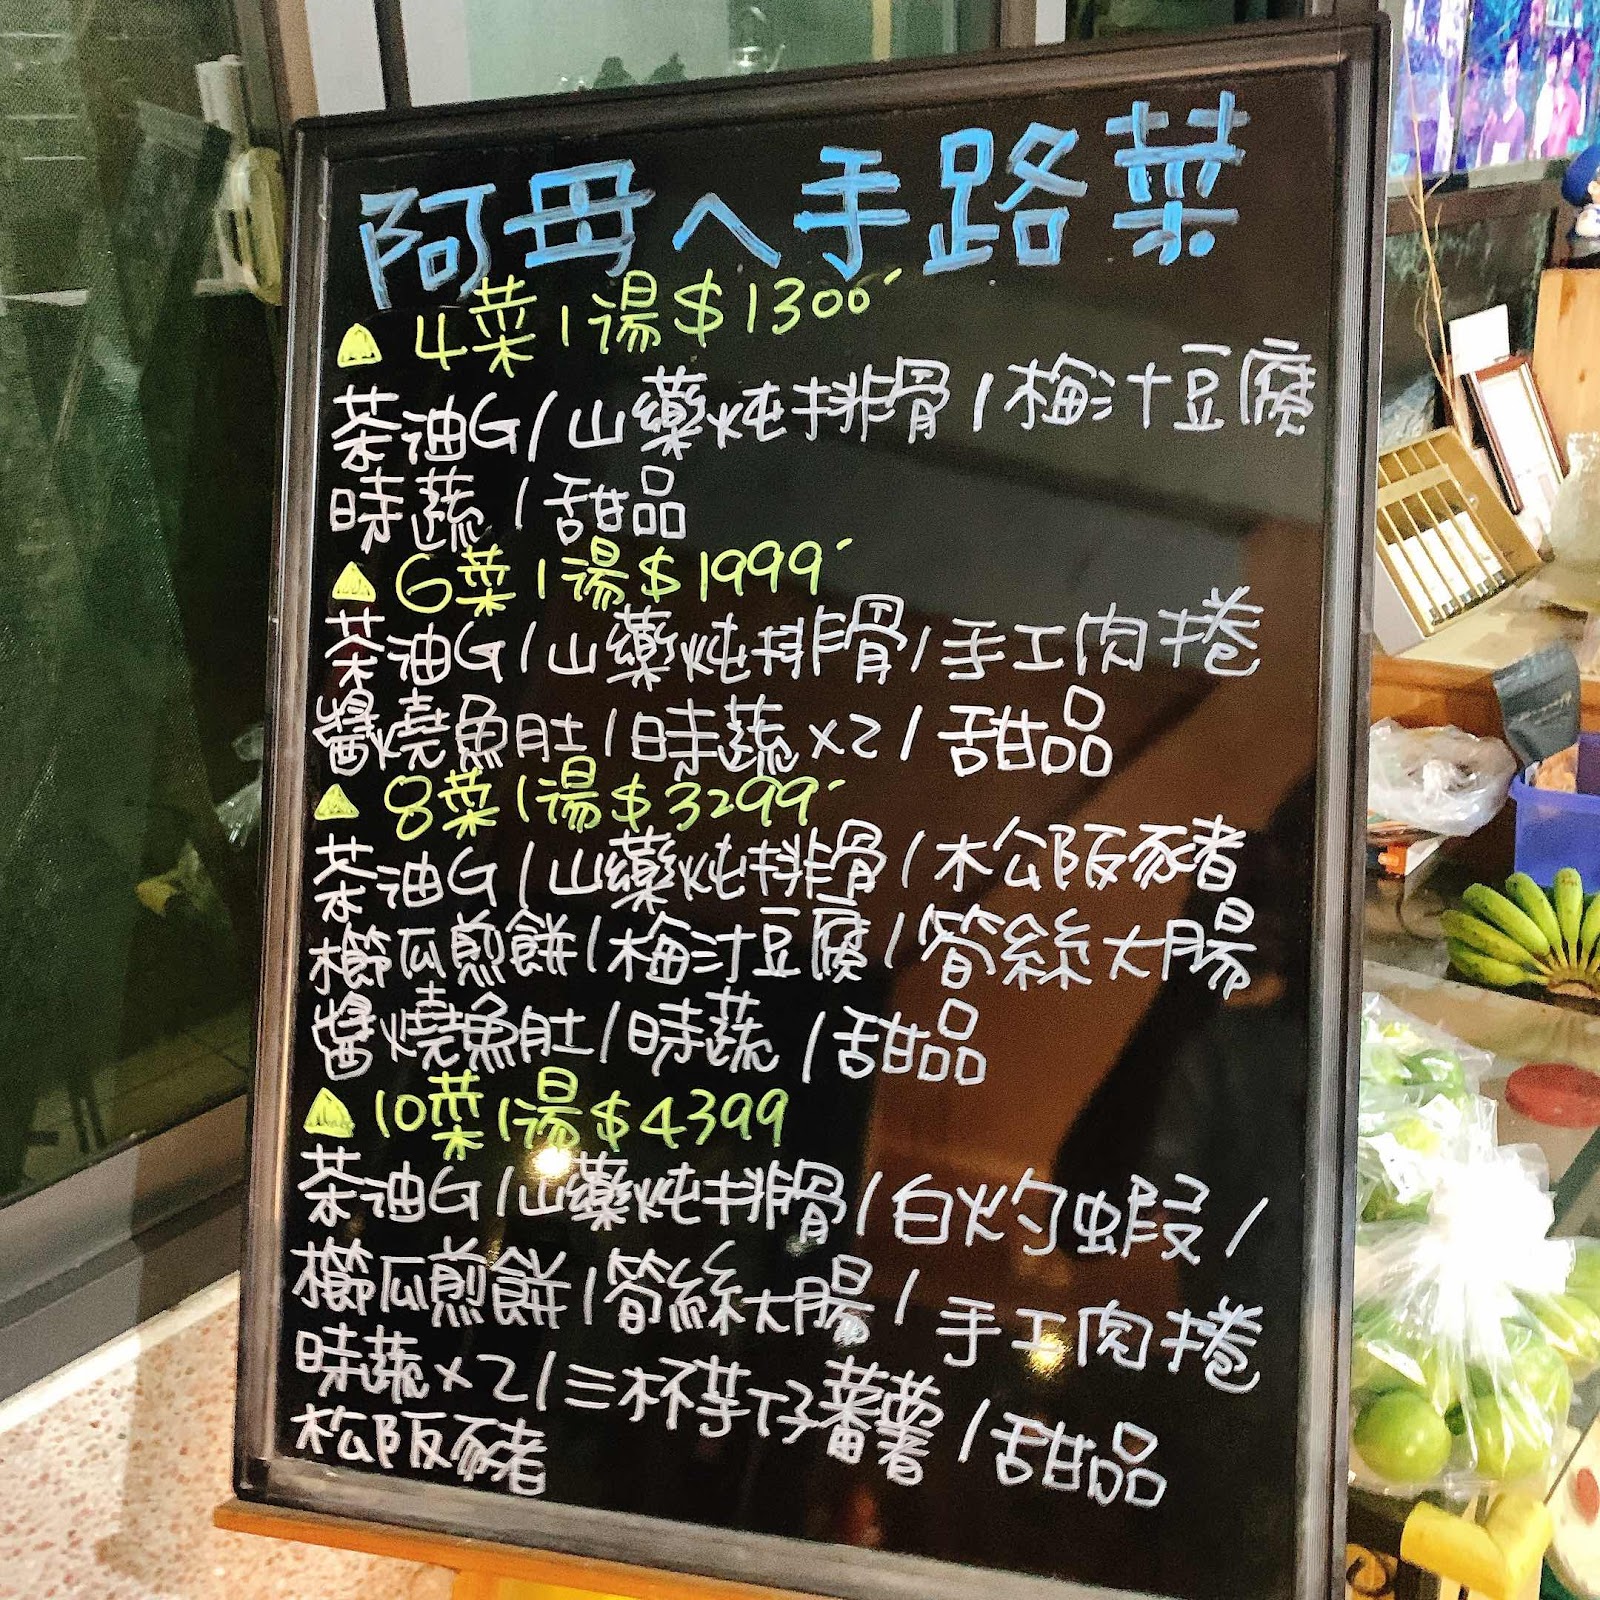 阿母ㄟ手路菜
4菜1湯$1300
茶油G/山藥炖排骨/梅汁豆腐
時蔬/甜品
6菜1湯$1999
茶油G/山藥炖排骨/手工肉捲
醬燒魚肚/時蔬x2/甜品
8菜1湯$3299
茶油G/山藥炖排骨/松阪豬
櫛瓜煎餅/梅汁豆腐/筍絲大腸
醬燒魚肚/時蔬/甜品
10菜1湯$4399
茶油G/山藥炖排骨/白灼蝦/
櫛瓜煎餅/筍絲大腸/手工肉捲
時蔬x2/三杯芋仔蕃薯/甜品
松阪豬